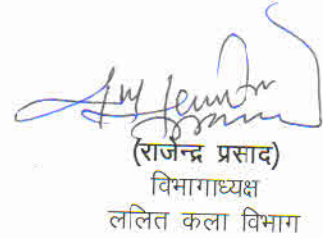 (राजेन्द्र प्रसाद)
विभागाध्यक्ष
ललित कला विभाग